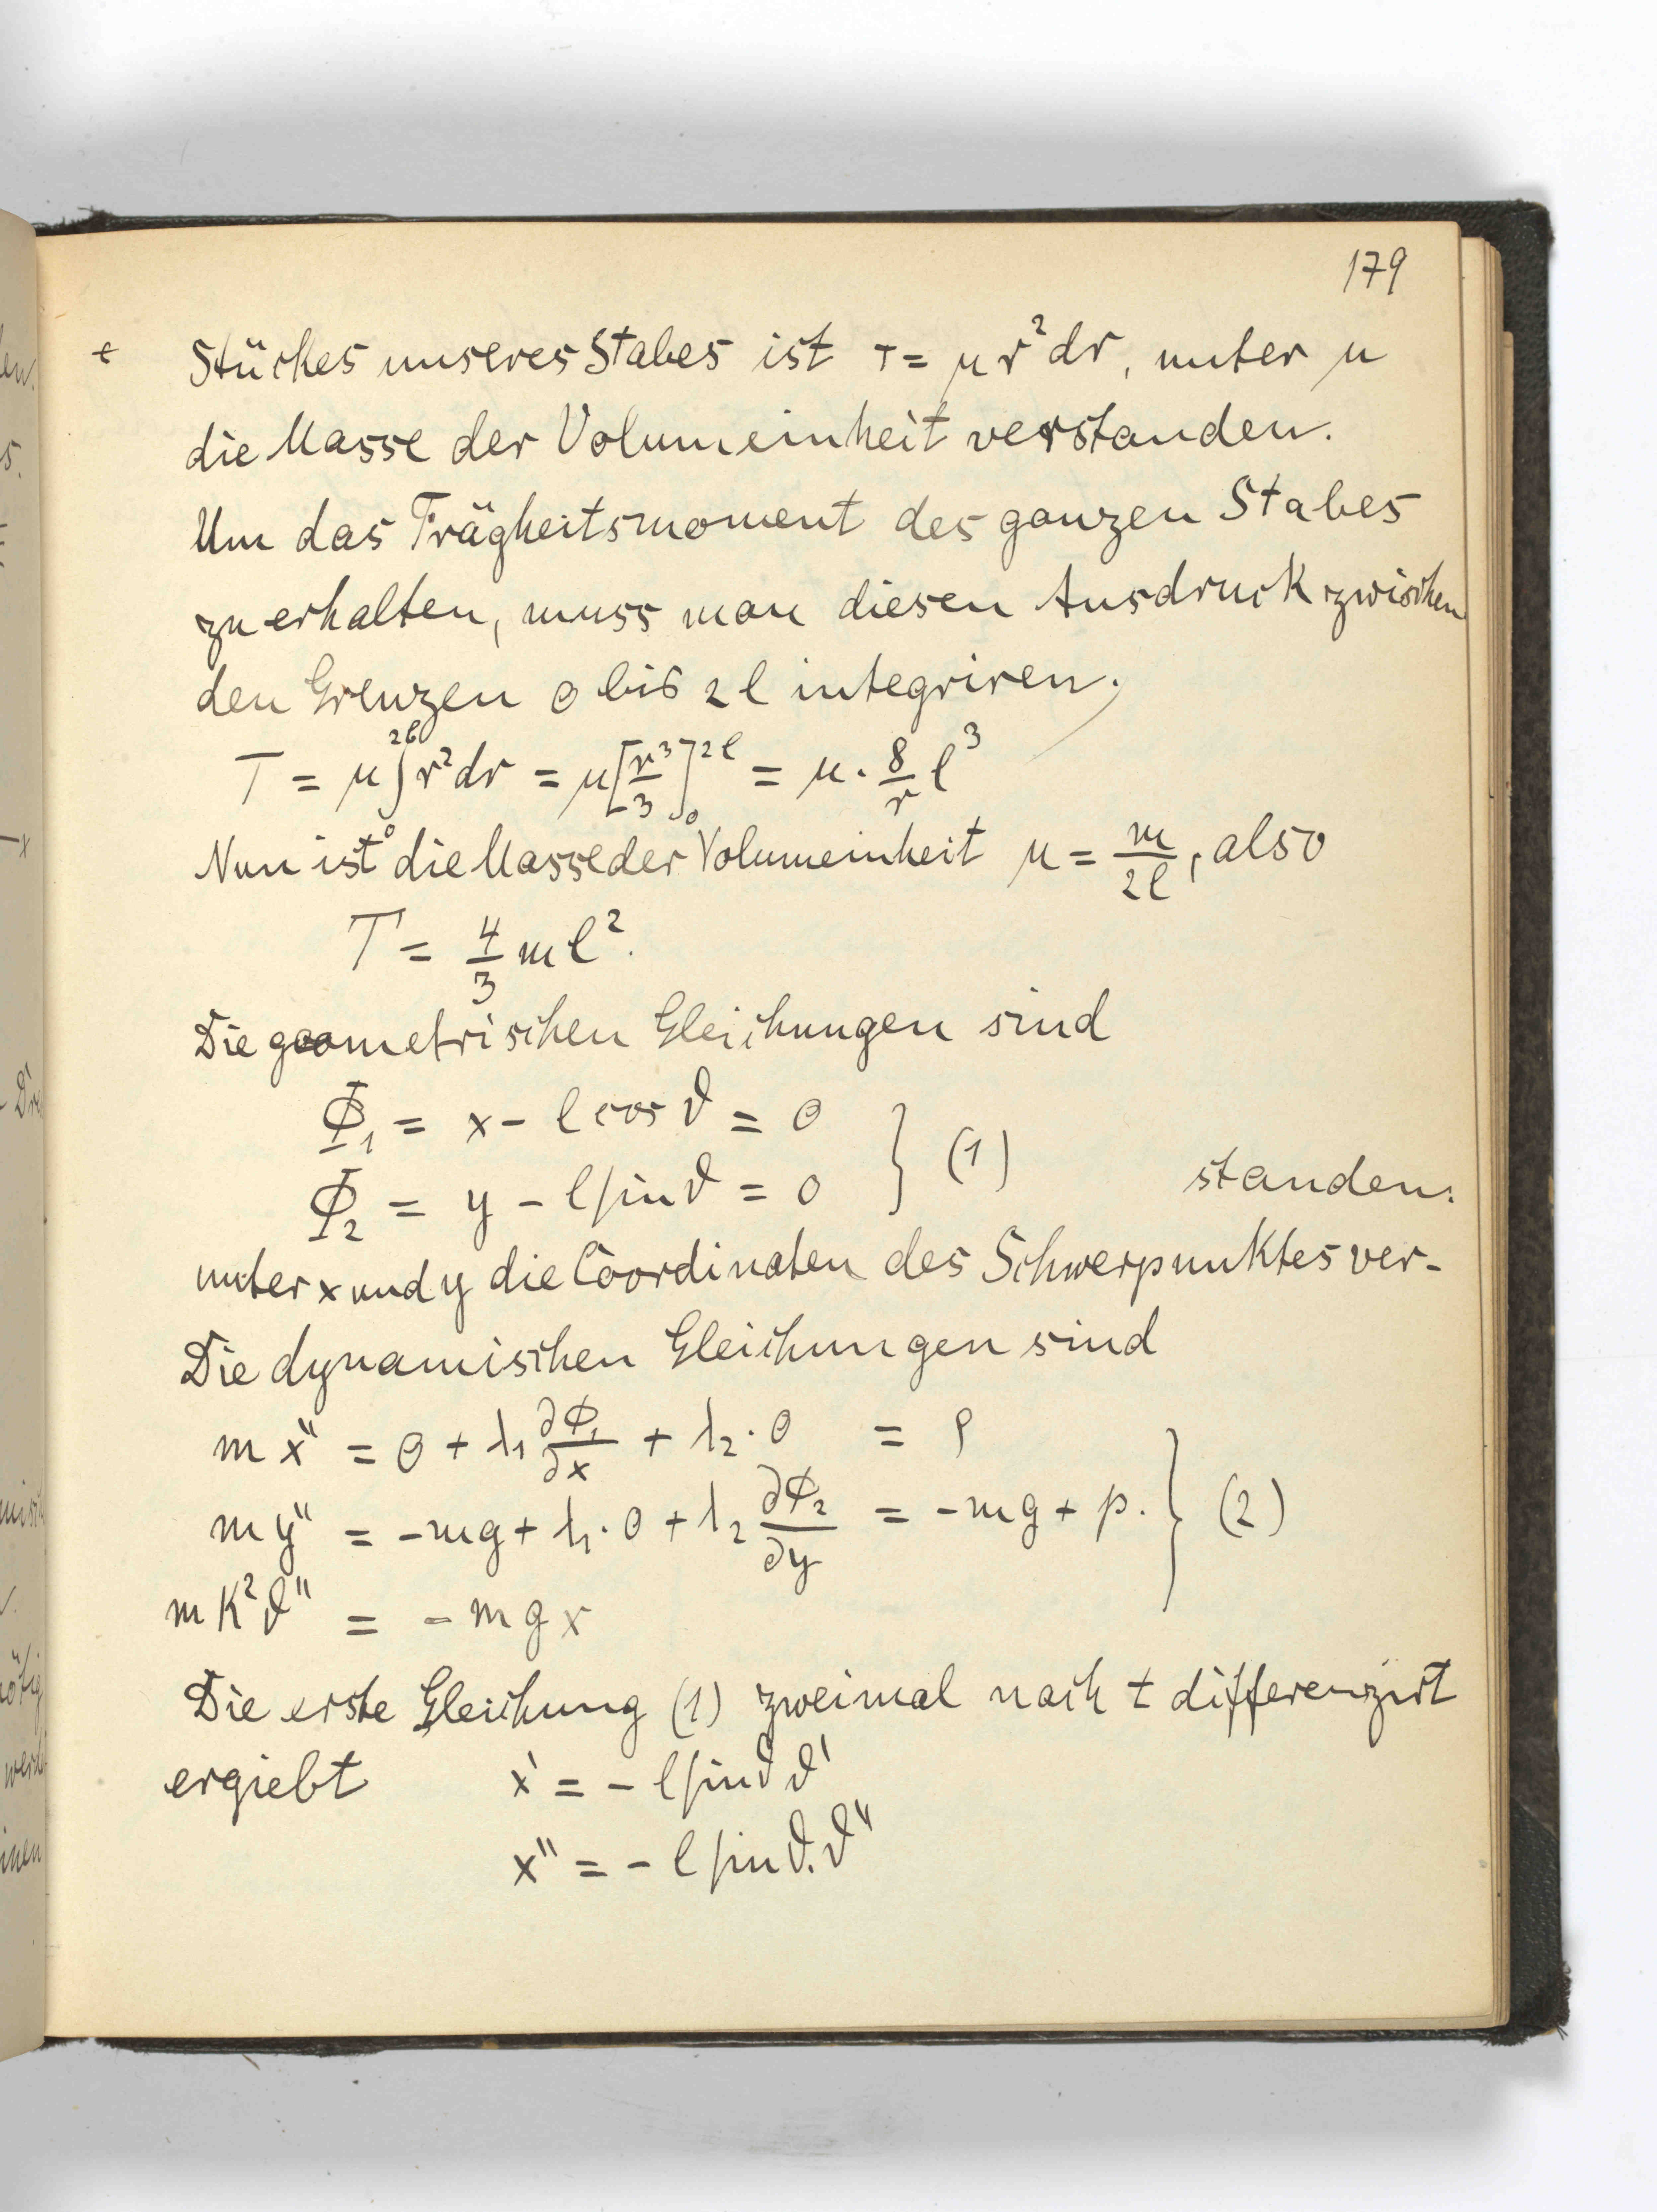 179
Stückes unseres Stabes ist τ = μ r² dr, unter μ
die Masse der Volumeinheit verstanden.
Um das Trägheitsmoment des ganzen Stabes
zu erhalten, muss man diesen Ausdruck zwischen
den Grenzen 0 bis 2l integriren.
T = μ∫₀²ˡ r² dr = μ[r³/3]₀²ˡ = μ · 8/r l³
Nun ist die Masse der Volumeinheit μ = m/2l, also
T = 4/3 m l².
Die geometrischen Gleichungen sind
Φ₁ = x − l cos ϑ = 0
Φ₂ = y − l sin ϑ = 0 } (1)
standen.
unter x und y die Coordinaten des Schwerpunktes ver-
Die dynamischen Gleichungen sind
m x'' = 0 + λ₁ ∂Φ₁/∂x + λ₂ · 0 = ρ
m y'' = −mg + λ₁ · 0 + λ₂ ∂Φ₂/∂y = −mg + p. } (2)
m K² ϑ'' = − m g x
Die erste Gleichung (1) zweimal nach t differenzirt
ergiebt x' = − l sin ϑ ϑ'
x'' = − l sin ϑ. ϑ''